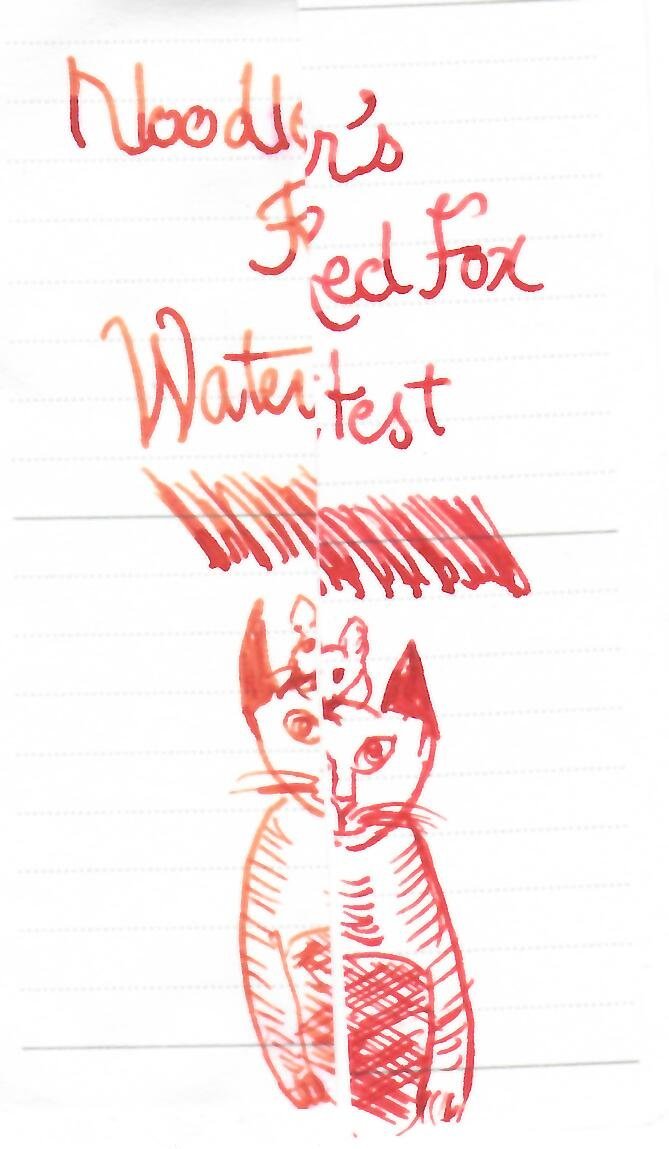 Noodler's
Red Fox
Water test